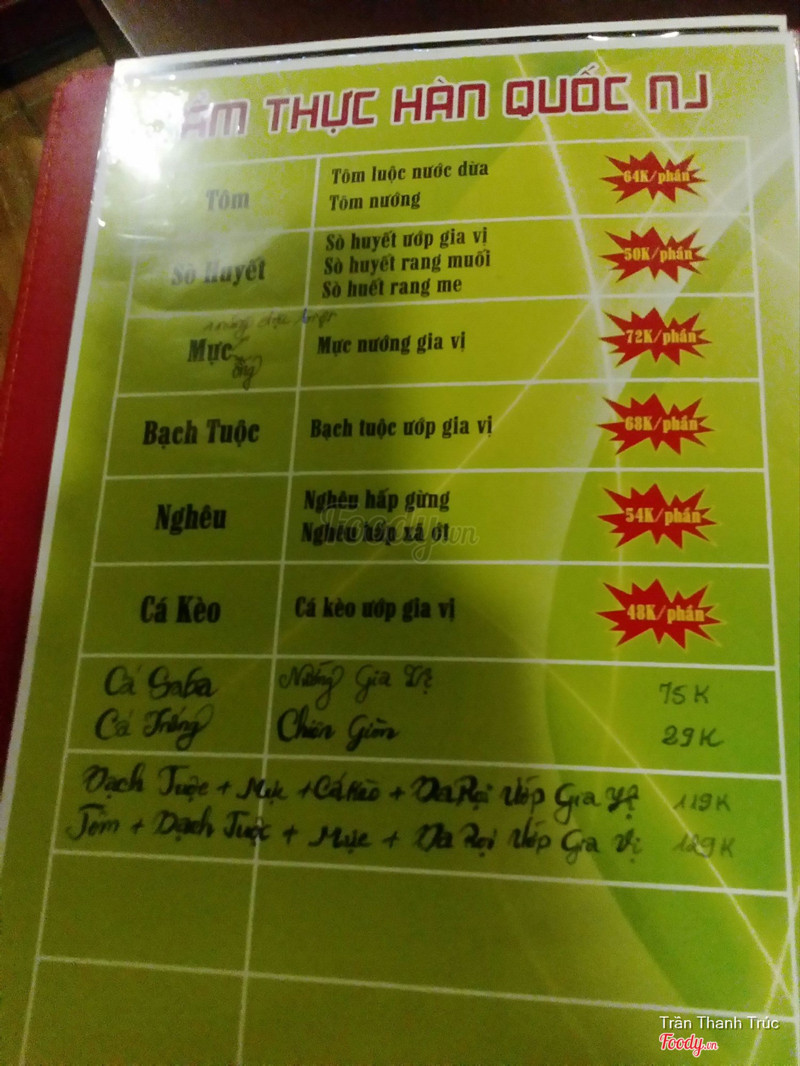 ẨM THỰC HÀN QUỐC NJ
Tôm
Tôm luộc nước dừa
Tôm nướng
64K/phần
Sò Huyết
Sò huyết ướp gia vị
Sò huyết rang muối
Sò huết rang me
50K/phần
Mực
ống
Mực nướng gia vị
72K/phần
Bạch Tuộc
Bạch tuộc ướp gia vị
68K/phần
Nghêu
Nghêu hấp gừng
Nghêu hấp xả ớt
54K/phần
Cá Kèo
Cá kèo ướp gia vị
48K/phần
Cá Saba Nướng Gia Vị 75K
Cá Trứng Chiên Giòn 29K
Bạch Tuộc + Mực + Cá Kèo + Ba Rọi Ướp Gia Vị 119K
Tôm + Bạch Tuộc + Mực + Ba Rọi Ướp Gia Vị 129K
Foody.vn
Trần Thanh Trúc
Foody.vn